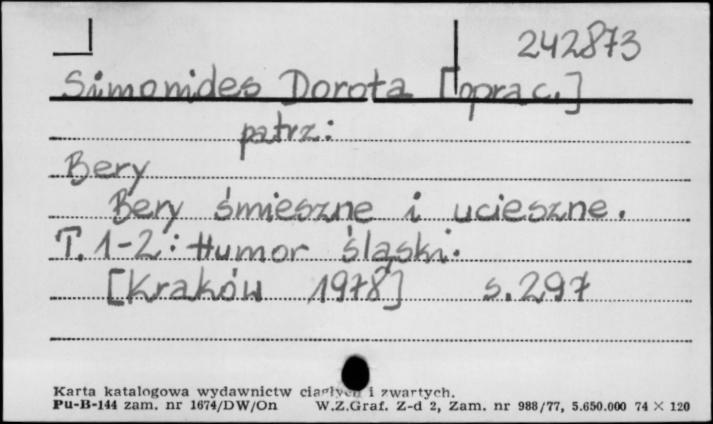 242873
Simonides Dorota [oprac.]
patrz:
Bery
Bery śmieszne i ucieszne.
T. 1-2: Humor śląski.
[Kraków 1978] s. 297
Karta katalogowa wydawnictw ciągłych i zwartych.
Pu-B-144 zam. nr 1674/DW/On W.Z.Graf. Z-d 2, Zam. nr 988/77, 5.650.000 74 × 120